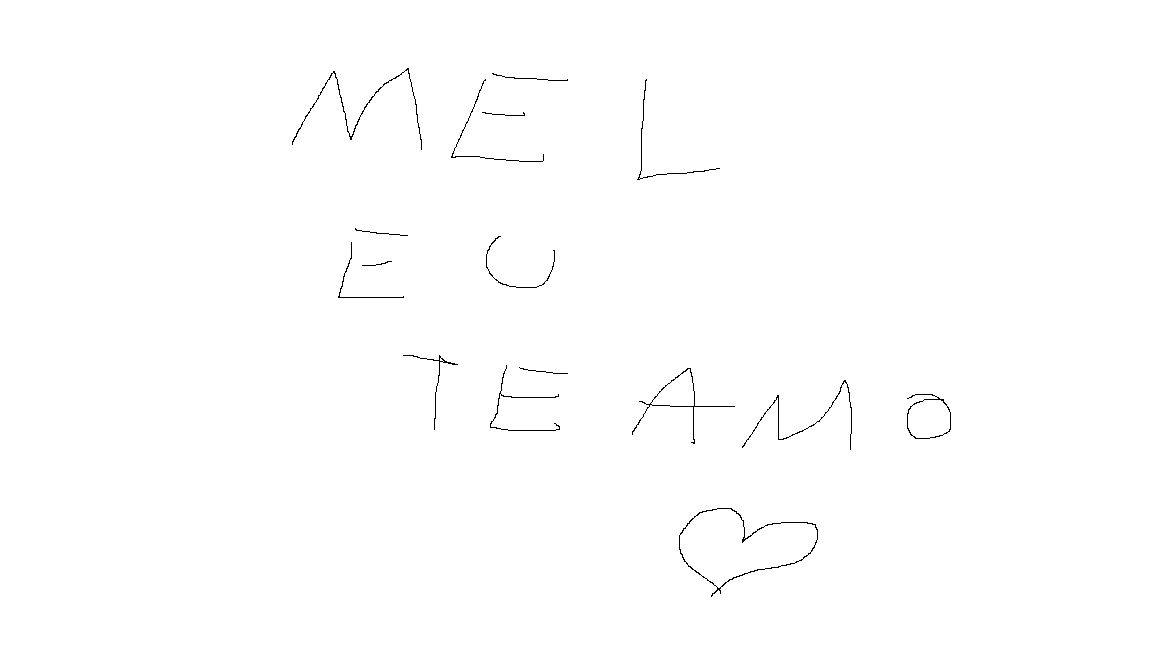 MEL
EU
TE AMO